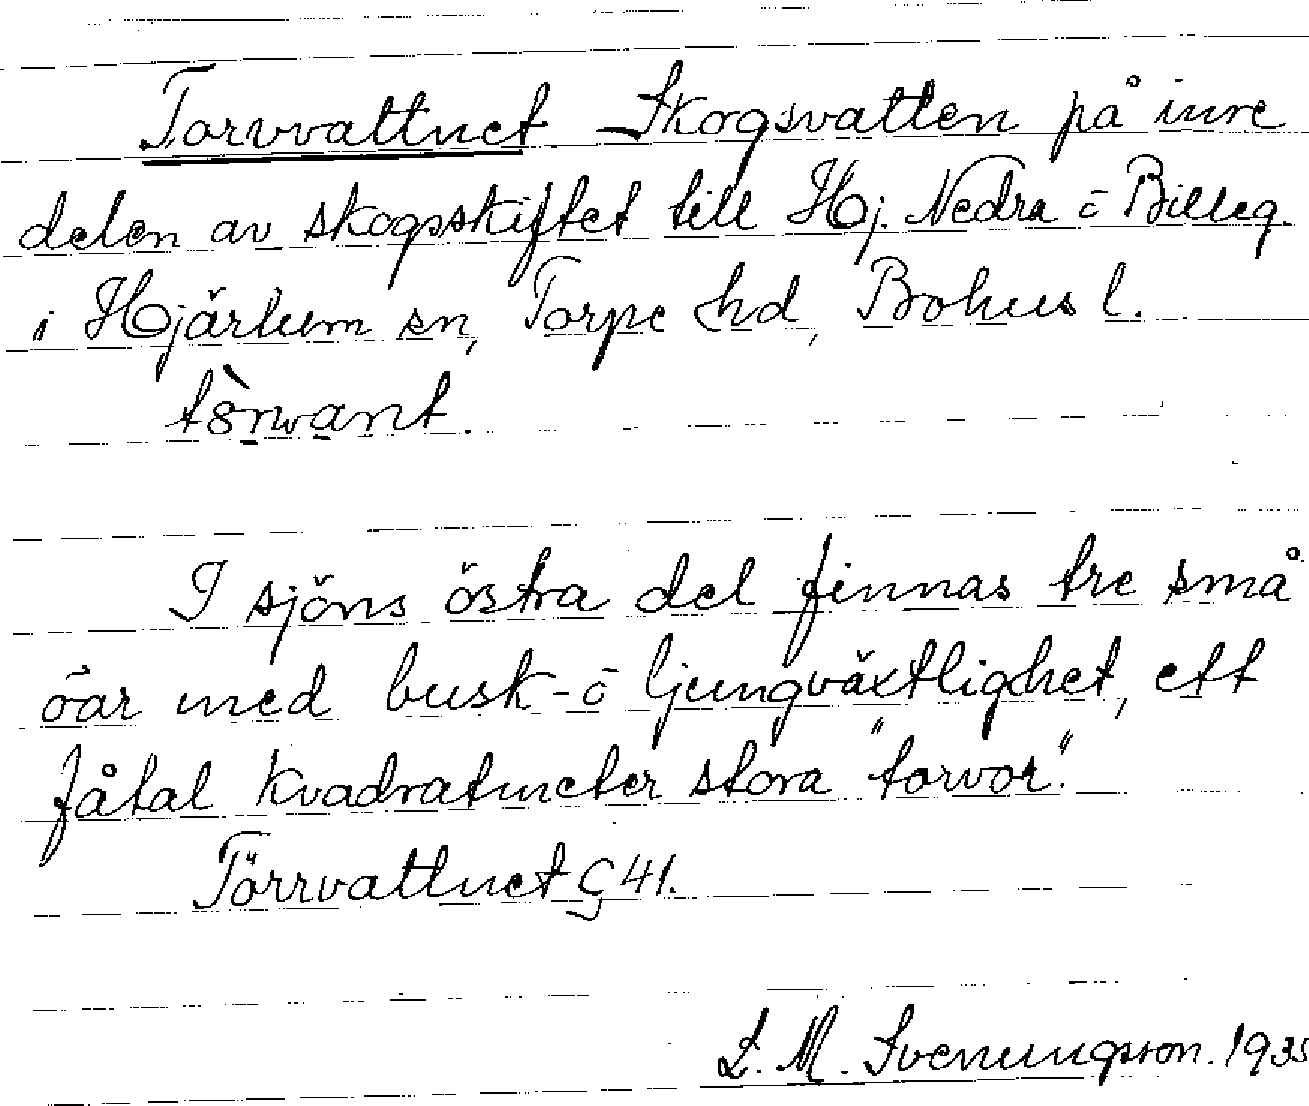 Torvvattnet Skogsvatten på inre
delen av skogsskiftet till Hj. Nedra ō Billeg.
i Hjärtum sn, Torpe hd, Bohus l.
I sjöns östra del finnas tre små
öar med busk- ō ljungväxtlighet, ett
fåtal kvadratmeter stora "torvor".
Törrvattnet G 41.
L. M. Svenungsson. 1935